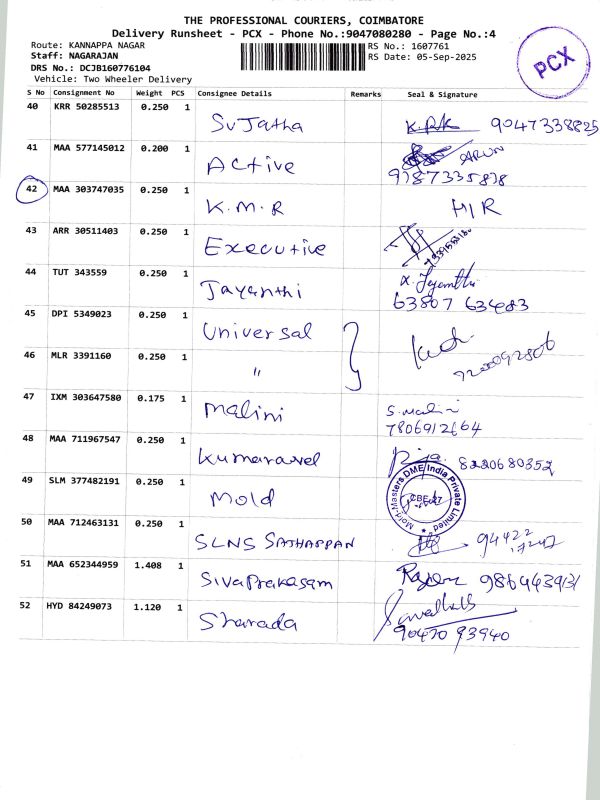 THE PROFESSIONAL COURIERS, COIMBATORE
Delivery Runsheet - PCX - Phone No.:9047080280 - Page No.:4
Route: KANNAPPA NAGAR RS No.: 1607761
Staff: NAGARAJAN RS Date: 05-Sep-2025
DRS No.: DCJB160776104
Vehicle: Two Wheeler Delivery
PCX
S No Consignment No Weight PCS Consignee Details Remarks Seal & Signature
40 KRR 50285513 0.250 1 Sujatha 9047338825
41 MAA 577145012 0.200 1 Active ARUN
9787335838
42 MAA 303747035 0.250 1 K.M.R H/R
43 ARR 30511403 0.250 1 Executive
44 TUT 343559 0.250 1 Jayanthi
63807 63483
45 DPI 5349023 0.250 1 Universal
46 MLR 3391160 0.250 1 "
47 IXM 303647580 0.175 1 Malini S.Malini
7806912664
48 MAA 711967547 0.250 1 Kumaravel 8220680352
49 SLM 377482191 0.250 1 Mold Mold-Masters DME India Private Limited
50 MAA 712463131 0.250 1 SLNS SATHAPPAN 94422
17247
51 MAA 652344959 1.408 1 Sivaprakasam 9864439131
52 HYD 84249073 1.120 1 Sharada
90470 93940